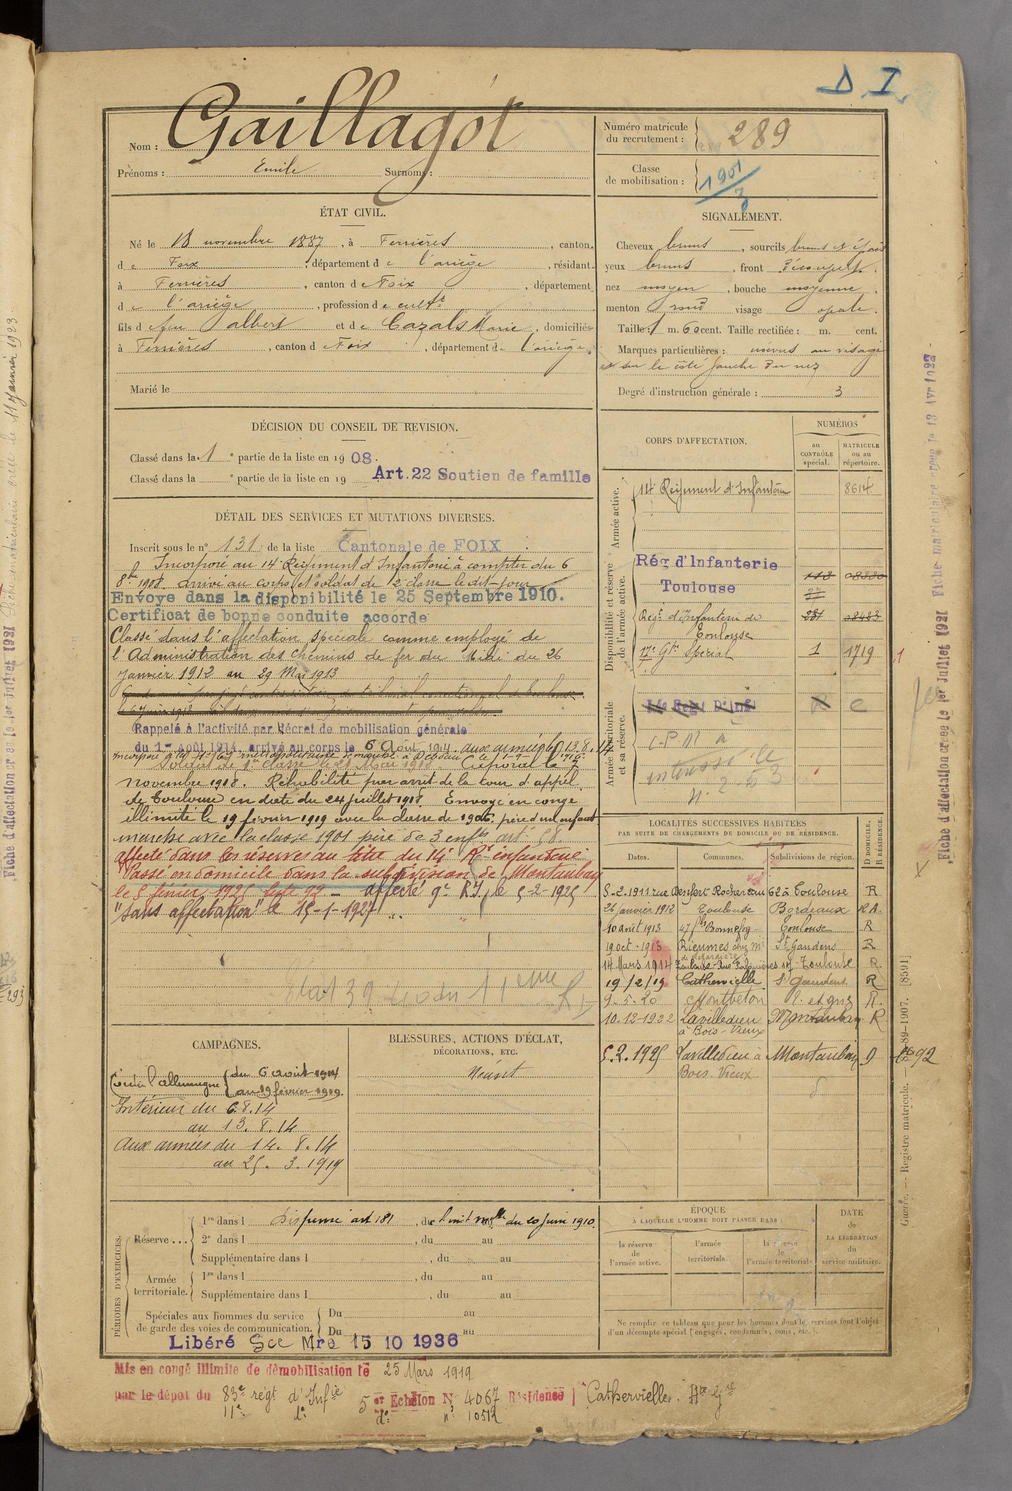 D I.
Nom : Gaillagot
Prénoms : Emile Surnoms :
Numéro matricule
du recrutement : 289
Classe
de mobilisation : 1901
3
ÉTAT CIVIL.
Né le 18 novembre 1887, à Ferrières, canton
de Foix, département de l'ariège, résidant
à Ferrières, canton de Foix, département
de l'ariège, profession de cultr
fils de feu albert et de Cazals Marie, domiciliés
à Ferrières, canton d Foix, département de l'ariège.
Marié le
SIGNALEMENT.
Cheveux bruns, sourcils bruns
yeux bruns, front découvert.
nez moyen, bouche moyenne.
menton rond visage ovale.
Taille : 1 m. 60 cent. Taille rectifiée : m. cent.
Marques particulières : au visage
et sur le côté gauche du nez
Degré d'instruction générale : 3
DÉCISION DU CONSEIL DE REVISION.
Classé dans la 1e partie de la liste en 1908.
Classé dans la e partie de la liste en 19 Art. 22 Soutien de famille
DÉTAIL DES SERVICES ET MUTATIONS DIVERSES.
Inscrit sous le n° 131 de la liste Cantonale de FOIX
Incorporé au 14e Régiment d'Infanterie à compter du 6
8bre 1908. arrivé au corps et soldat de 2e classe le dit jour
Envoyé dans la disponibilité le 25 Septembre 1910.
Certificat de bonne conduite accordé
Classé dans l'affectation spéciale comme employé de
l'Administration des chemins de fer du Midi du 26
janvier 1912 au 29 Mai 1913
Rappelé à l'activité par décret de mobilisation générale
du 1er Août 1914, arrivé au corps le 6 Août 1914. aux armées le 13.8.14
Soldat de 1e classe le 29 Mai 1918. Caporal le 7
novembre 1918. Réhabilité par arrêt de la cour d'appel
de Toulouse en date du 24 juillet 1918. Envoyé en congé
illimité le 19 février 1919 avec la classe de 1906, père d'un enfant
marche avec la classe 1901 père de 3 enfts art. 58
affecté dans les réserves au titre du 14e Rt infanterie
Passé en domicile dans la subdivision de Montauban
le 5 février 1925 liste 92 - affecté 9e R.I. le 5-2-1925
"sans affectation" le 15-1-1927
CORPS D'AFFECTATION.
NUMÉROS
au CONTRÔLE spécial.
MATRICULE ou au répertoire.
Armée active.
14e Régiment d'Infanterie 8614
Disponibilité et réserve de l'armée active.
Rég d'Infanterie
Toulouse
Régt d'Infanterie de
Toulouse
17e Gpe Spécial 1 1719
Armée territoriale et sa réserve.
LOCALITÉS SUCCESSIVES HABITÉES
PAR SUITE DE CHANGEMENTS DE DOMICILE OU DE RÉSIDENCE.
Dates. Communes. Subdivisions de région. D DOMICILE. R RÉSIDENCE.
5-2-1911 rue Denfert Rochereau 62 à Toulouse R
26 janvier 1912 Toulouse Bordeaux R A
10 août 1913 47 fbg Bonnefoy Toulouse R
19 oct - 1913 Rieumes chez Mr St Gaudens R
14 Mars 1914 Toulouse R.
19/2/19 Cathervielle St Gaudens R
9-5-20 Montbéton R.
10-12-1922 Lavilledieu Montauban R
à Bois-Vieux
5.2.1925 Lavilledieu à Montauban D
Bois-Vieux
CAMPAGNES.
Contre l'allemagne du 6 août 1914
au 19 février 1919.
Intérieur du 6.8.14
au 13.8.14
Aux armées du 14.8.14
au 25.3.1919
BLESSURES, ACTIONS D'ÉCLAT,
DÉCORATIONS, ETC.
Néant
PÉRIODES D'EXERCICES.
Réserve...
1re dans l Dispensé art 181, du 20 Juin 1910.
2e dans l , du au
Supplémentaire dans l , du au
Armée territoriale.
1re dans l , du au
Supplémentaire dans l , du au
Spéciales aux hommes du service
de garde des voies de communication.
Du au
Du au
Libéré Sce Mre 15 10 1936
ÉPOQUE
À LAQUELLE L'HOMME DOIT PASSER DANS :
la réserve de l'armée active.
l'armée territoriale.
la réserve de l'armée territoriale.
DATE
de
LA LIBÉRATION
du
service militaire.
Ne remplir ce tableau que pour les hommes dont les services font l'objet
d'un décompte spécial (engagés, condamnés, omis, etc.).
Mis en congé illimité de démobilisation le 25 Mars 1919
par le dépot du 83e régt d'Infie 5er Echelon N° 4067 Résidence Cathervielle. Hte Gne
11e d° d° n° 10512
Fiche d'affectation créée le 1er Juillet 1921
Guerre. — Registre matricule. — [8591]